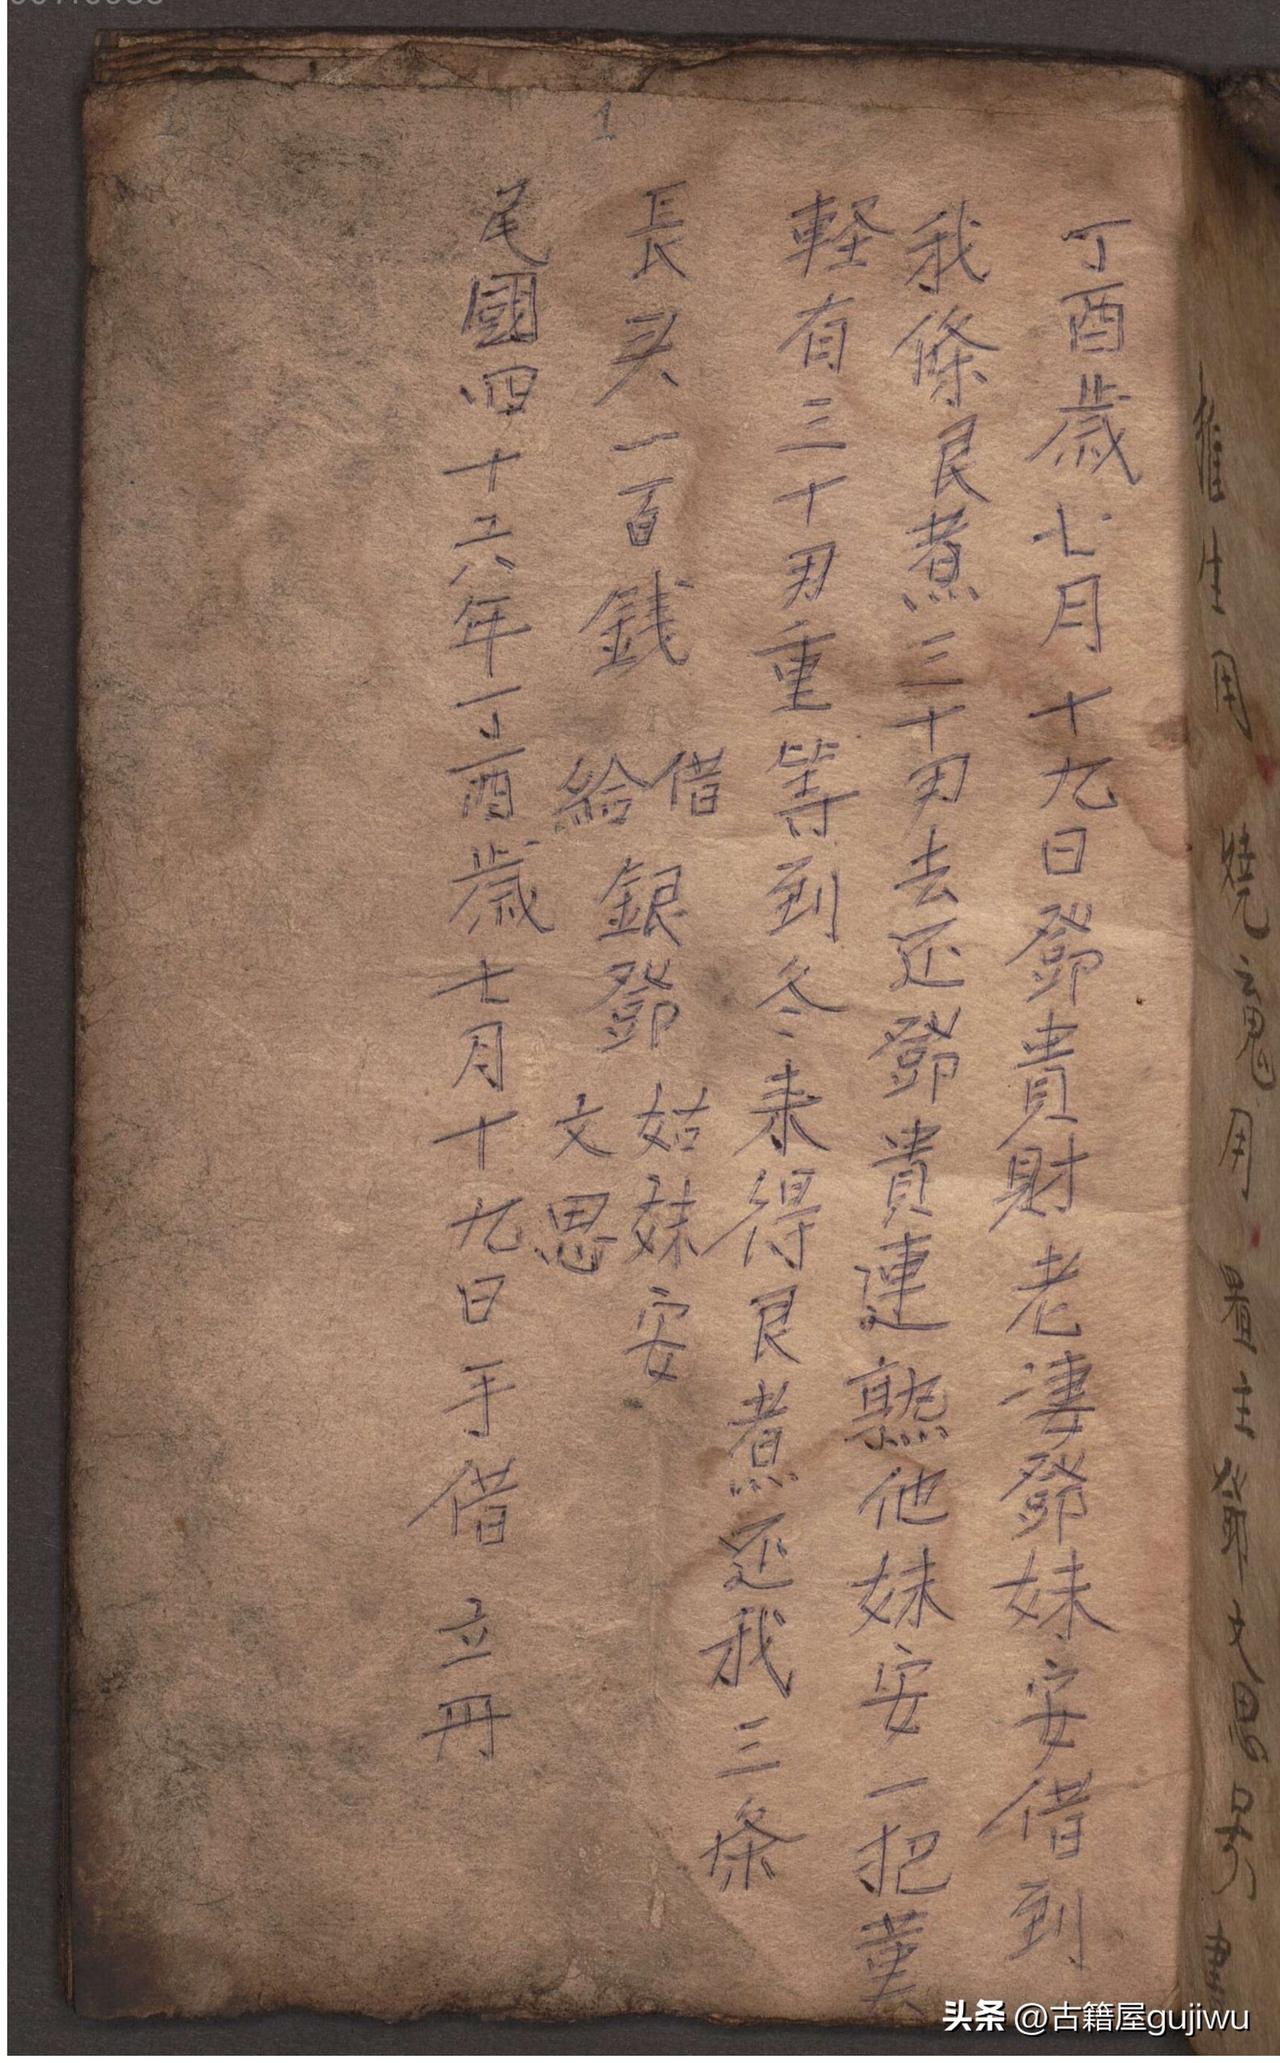 推生用 燒 用 置主鄧文思 書
丁酉歲七月十九日鄧貴財老淒鄧妹安借到
我條艮煮三十刃去还鄧貴連熟他妹安一把萬
軽有三十刃重等到冬来得艮煮还我三条
長头一百銭
借給銀鄧 姑妹安 文思
尾國四十六年丁酉歲七月十九日手借 立冊
1
头条 @古籍屋gujiwu